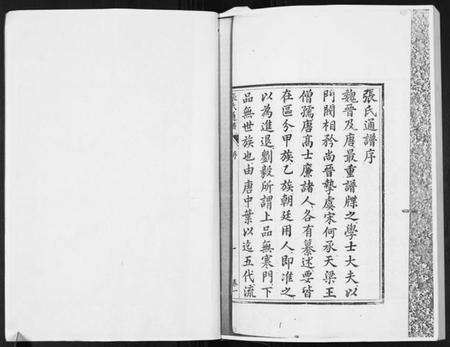 張氏通譜序
魏晉及唐最重譜牒之學士大夫以
門閥相矜尚晉摯虞宋何承天梁王
僧孺唐高士廉諸人各有纂述要皆
在區分甲族乙族朝廷用人即准之
以為進退劉毅所謂上品無寒門下
品無世族也由唐中葉以迄五代流
序
一
卷一
1